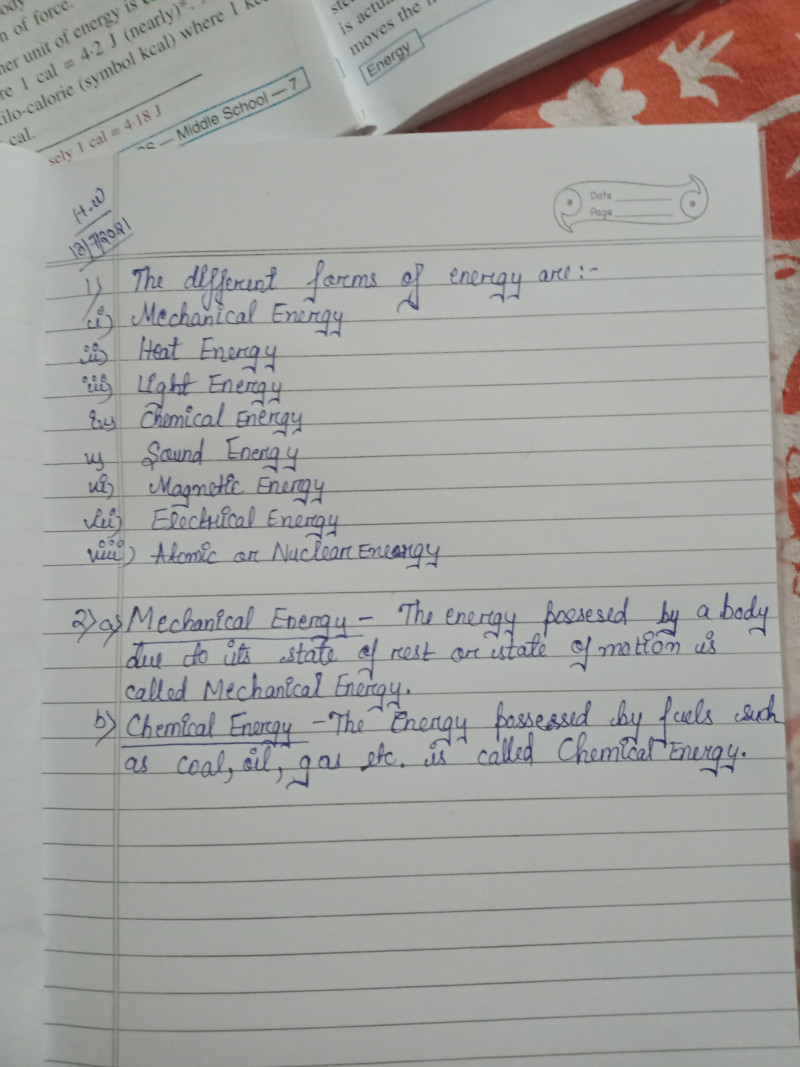 n of force.
her unit of energy is
re 1 cal = 4·2 J (nearly)*.
ilo-calorie (symbol kcal) where 1
cal.
sely 1 cal = 4·18 J
— Middle School — 7
is actu
moves the
Energy
H.W
Date
Page
1) The different forms of energy are:-
i) Mechanical Energy
ii) Heat Energy
iii) Light Energy
iv) Chemical Energy
v) Sound Energy
vi) Magnetic Energy
vii) Electrical Energy
viii) Atomic or Nuclear Energy
2) a) Mechanical Energy - The energy possesed by a body
due to its state of rest or state of motion is
called Mechanical Energy.
b) Chemical Energy - The Energy possessed by fuels such
as coal, oil, gas etc. is called Chemical Energy.